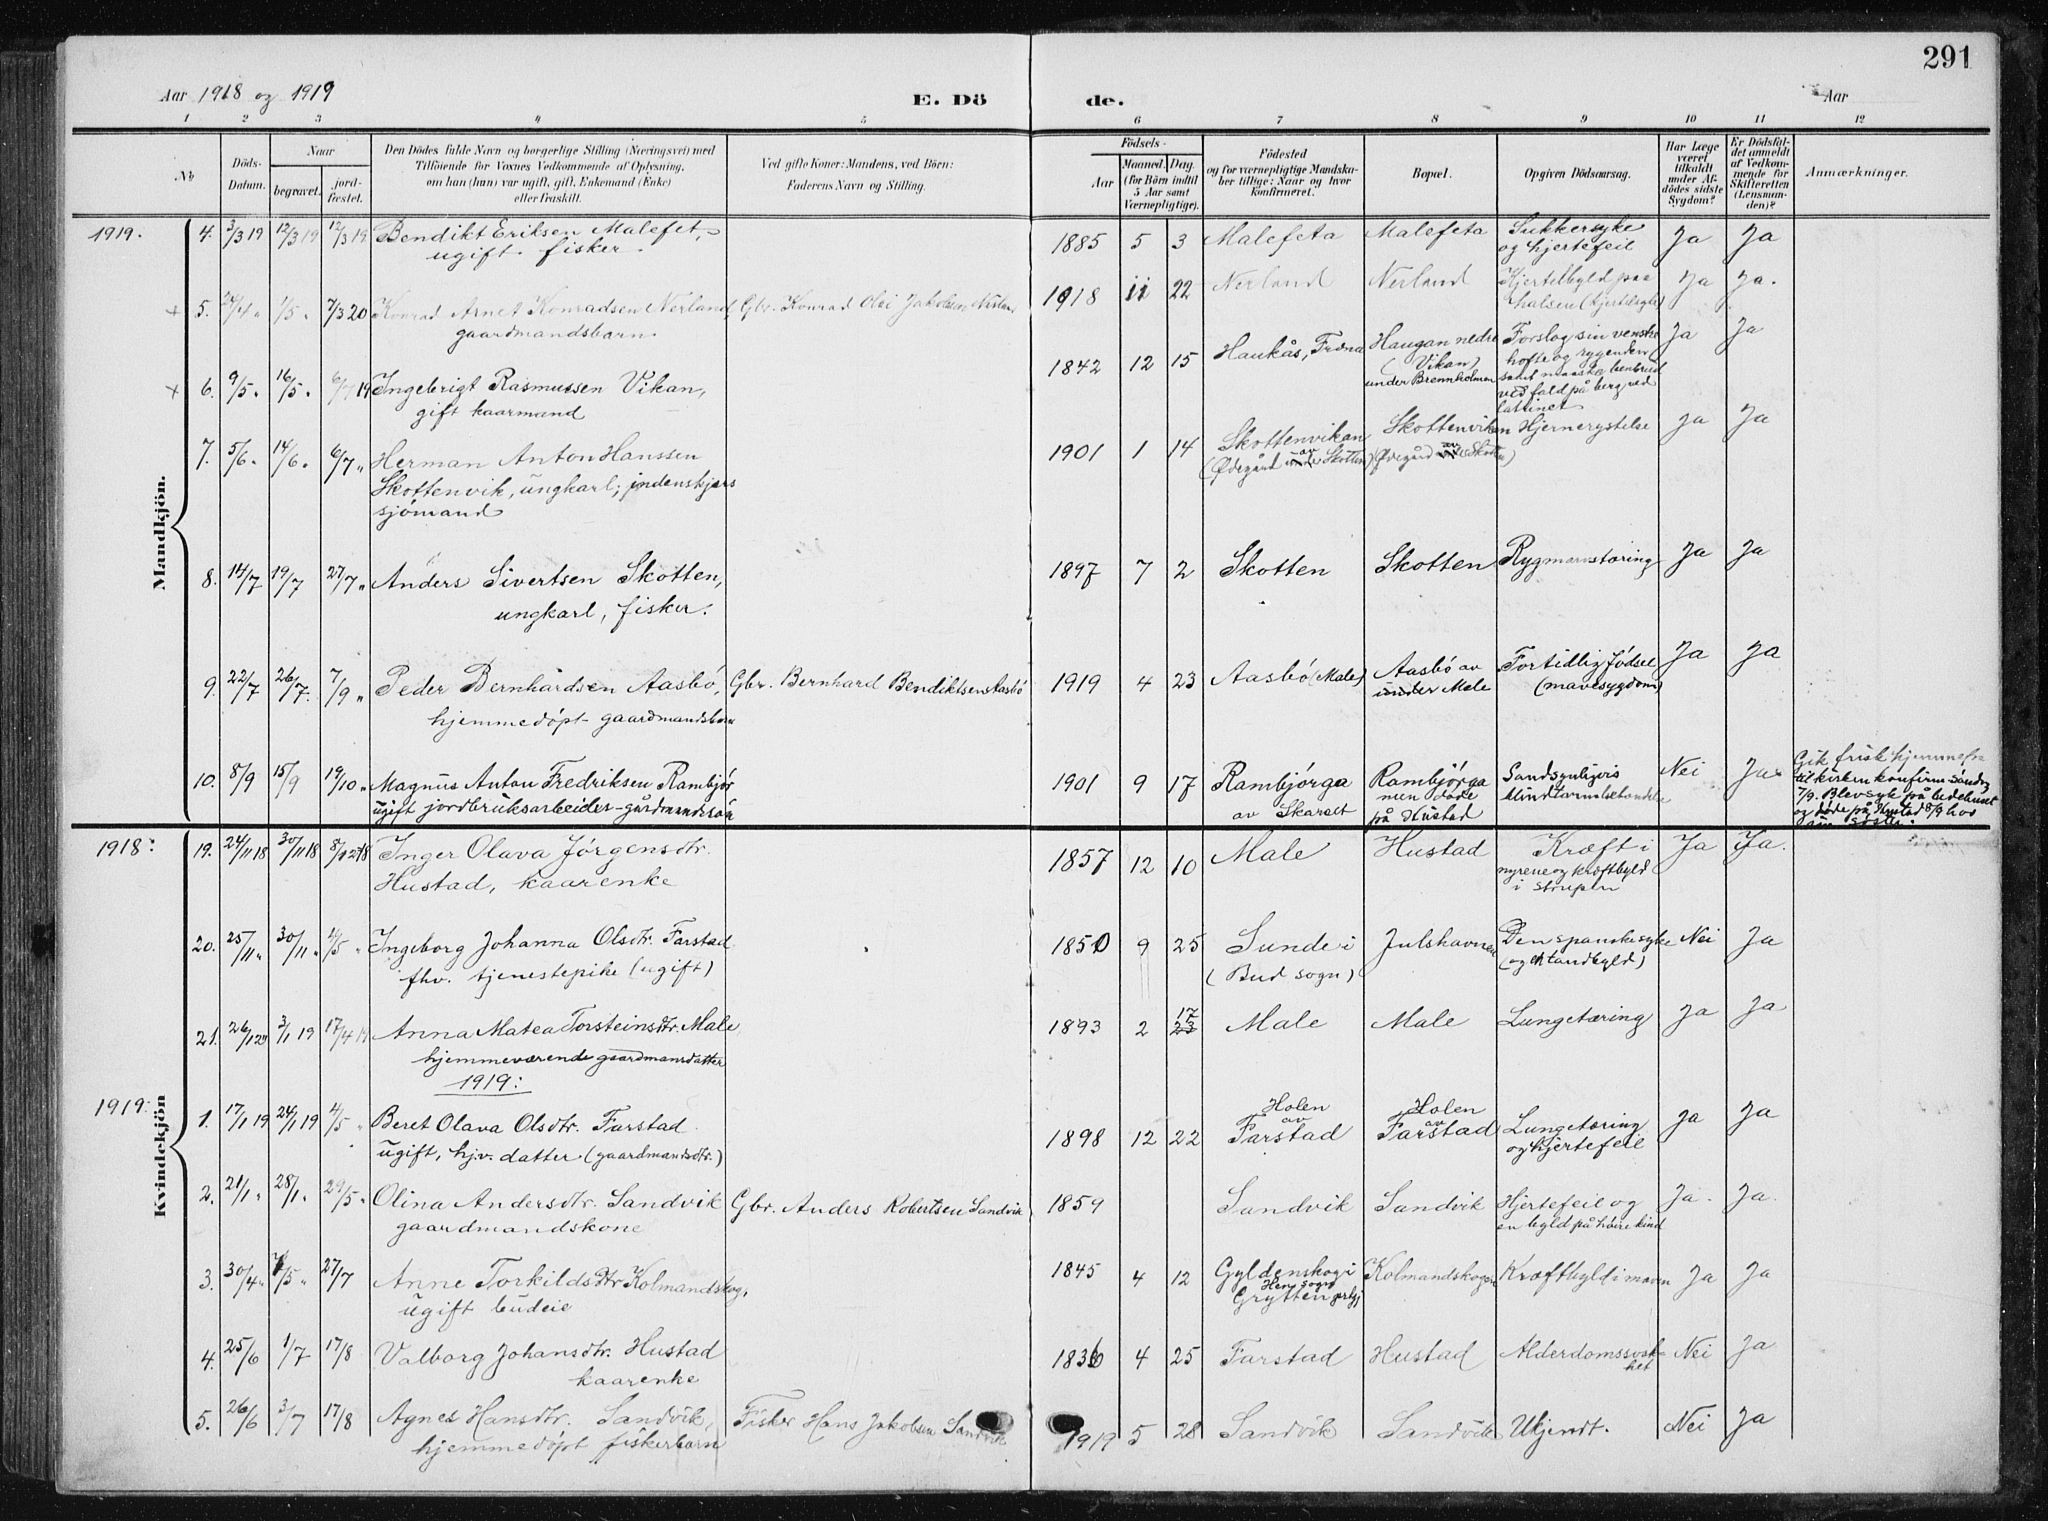 291
Aar 1918 og 1919
E. Dö
de.
Aar
1 2 3 4 5 6 7 8 9 10 11 12
No
Döds-Datum.
Naar
begravet.
jord-fæstet.
Den Dödes fulde Navn og borgerlige Stilling (Næringsvei) med
Tilföiende for Voxnes Vedkommende af Oplysning,
om han (hun) var ugift, gift, Enkemand (Enke)
eller fraskilt.
Ved gifte Koner: Mandens, ved Börn:
Faderens Navn og Stilling.
Födsels-
Aar
Maaned. Dag.
(for Börn indtil
5 Aar samt
Værnepligtige).
Födested
og for værnepligtige Mandsku-
ber tillige: Naar og hvor
konfirmeret.
Bopæl.
Opgiven Dödsaarsag.
Har Læge
været
tilkaldt
under Af-
dödes sidste
Sygdom?
Er Dödsfal-
det anmeldt
af Vedkom-
mende for
Skifteretten
(Lensman-
den)?
Anmærkninger.
Mandkjön.
1919.
4. 3/3 19 12/3 19 12/3 19 Bendikt Eriksen Malefet,
ugift fisker.
1885 5 3 Malefeta Malefeta Sukkersyke
og hjertefeil
Ja Ja
5. 24/4 " 1/5 " 7/3 20 Konrad Arnet Konradsen Nerland, Gbr. Konrad Olai Jakobsen Nerland
gaardmandsbarn.
1918 11 22 Nerland Nerland
halsen
Ja Ja.
6. 9/5 " 16/5 " 6/7 19 Ingebrigt Rasmussen Vikan,
gift kaarmand
1842 12 15 Haukås, Fræna Haugan nedre
(Vikan)
under Brennholmen
Forslog sin venstre
hofte og ryggenden
samt maaske benbrud
ved fald på berg ved
Ja Ja
7. 5/6 " 14/6 " 6/7 " Herman Anton Hanssen
Skottenvik, ungkarl; indenskjærs
sjömand
1901 1 14 Skottenvikan Skottenviken Hjernerystelse
(Ødegård av Skotten) (Ødegård av Skotten)
Ja Ja
8. 14/7 19/7 27/7 " Anders Sivertsen Skotten,
ungkarl, fisker.
1897 7 2 Skotten Skotten Rygmarvstæring Ja Ja
9. 22/7 26/7 7/9 " Peder Bernhardsen Aasbö, Gbr. Bernhard Bendiktsen Aasbö
hjemmedöpt gaardmandsbarn
1919 4 23 Aasbö (Male) Aasbö av
under Male
Fortidlig födsel
(mavesygdom)
Ja Ja
10. 8/9 15/9 19/10 " Magnus Anton Fredriksen Rambjör
ugift jordbruksarbeider - gårdmandssön
1901 9 17 Rambjörga
av Skarset
Rambjörga
men döde
på Hustad
Sandsynligvis
blindtarmsbetændelse
Nei Ja
Gik frisk hjemmefra
til kirken konfirm.söndag
7/9. Blev syk på bedehuset
og döde på Hustad 8/9 hos
sin söster.
Kvindekjön
1918:
19. 24/11 18 30/11 18 8/12 18 Inger Olava Jörgensdtr.
Hustad, kaarenke
1857 12 10 Male Hustad Kræft i
nyrene og kræftbyld
i strupen
Ja Ja.
20. 25/11 " 30/11 " 4/5 " Ingeborg Johanna Olsdtr. Farstad
fhv. tjenestepike (ugift)
1850 9 25 Sunde i
(Bud sogn)
Julshavnen Den spanske syke
(og tandbyld)
Nei Ja
21. 26/12 " 3/1 19 17/4 19 Anna Matea Torsteinsdtr. Male,
hjemmeværende gaardmansdatter
1893 2 17 23 Male Male Lungetæring Ja Ja
1919:
1919:
1. 17/1 19 24/1 19 4/5 " Beret Olava Olsdtr. Farstad
ugift, hjv. datter (gaardmandsdtr.)
1898 12 22 Holen
av
Farstad
Holen
av
Farstad
Lungetæring
og hjertefeil
Ja Ja
2. 21/1 " 28/1 " 29/5 " Olina Andersdtr. Sandvik Gbr. Anders Robertsen Sandvik
gaardmandskone
1859 Sandvik Sandvik Hjertefeil og
en byld på höire kind
Ja. Ja.
3. 30/4 " 7/5 " 27/7 Anne Torkildsdtr Kolmandskog,
ugift budeie
1845 4 12 Gyldenskog i
Hen sogn
Grytten prgj
Kolmandskogen Kræftbyld i maven Ja Ja
4. 25/6 1/7 17/8 Valborg Johansdtr. Hustad
kaarenke
1836 4 25 Farstad Hustad Alderdomssvak-
het
Nei Ja
5. 26/6 3/7 17/8 Agnes Hansdtr. Sandvik, Fisker Hans Jakobsen Sandvik
hjemmedöpt fiskerbarn
1919 5 28 Sandvik Sandvik Ukjendt. Nei Ja